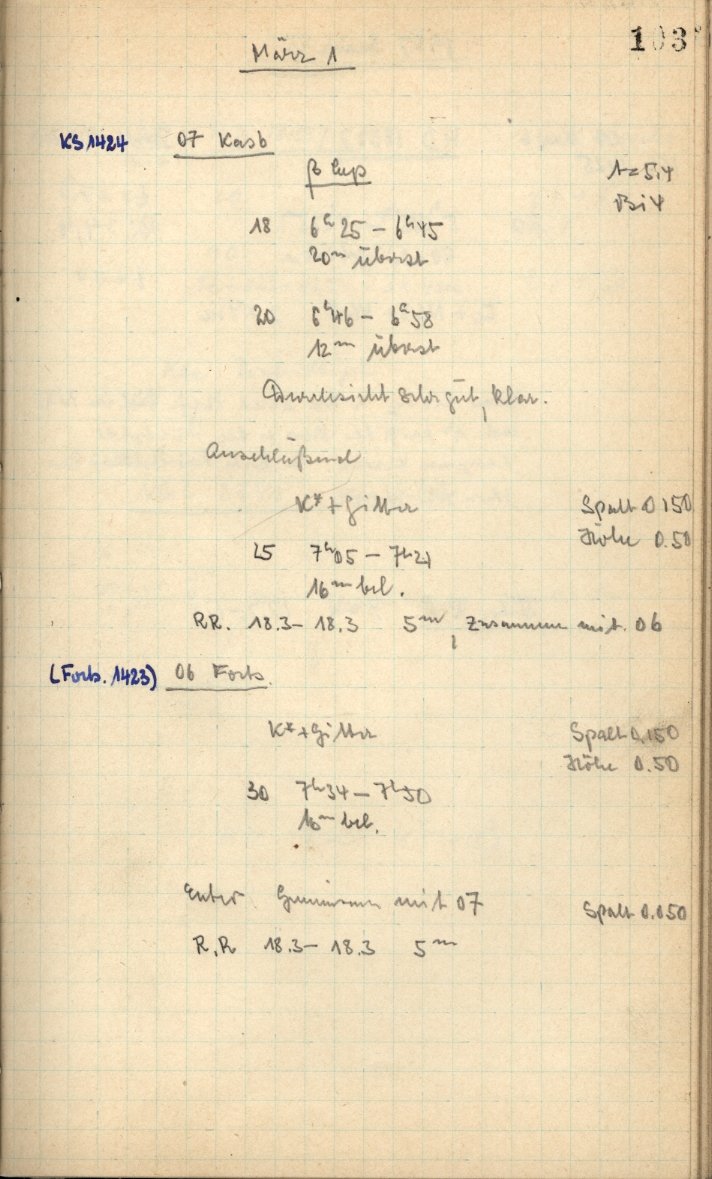 103
März 1
KS 1424 07 Kasb
β Lup
A = 5.4
Bi 4
18 6h25 – 6h45
20m überst
20 6h46 – 6h58
12m überst
Durchsicht sehr gut, klar.
Anschließend
K* + Gitter Spalt 0.150
Höhe 0.50
25 7h05 – 7h21
16m bel.
RR. 18.3 – 18.3 5m, Zusammen mit 06
(Forts. 1423) 06 Forts.
K* + Gitter Spalt 0.150
Höhe 0.50
30 7h34 – 7h50
16m bel.
Entw. mit 07 Spalt 0.050
R.R 18.3 – 18.3 5m